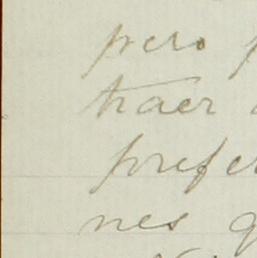 pero p
traer
prefer
nes q